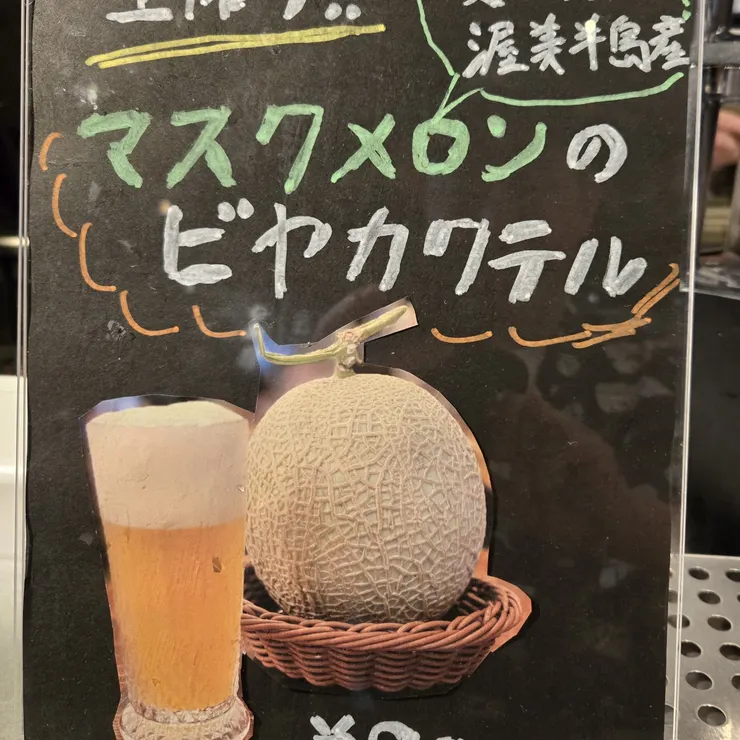 渥美半島産
マスクメロンの
ビヤカクテル